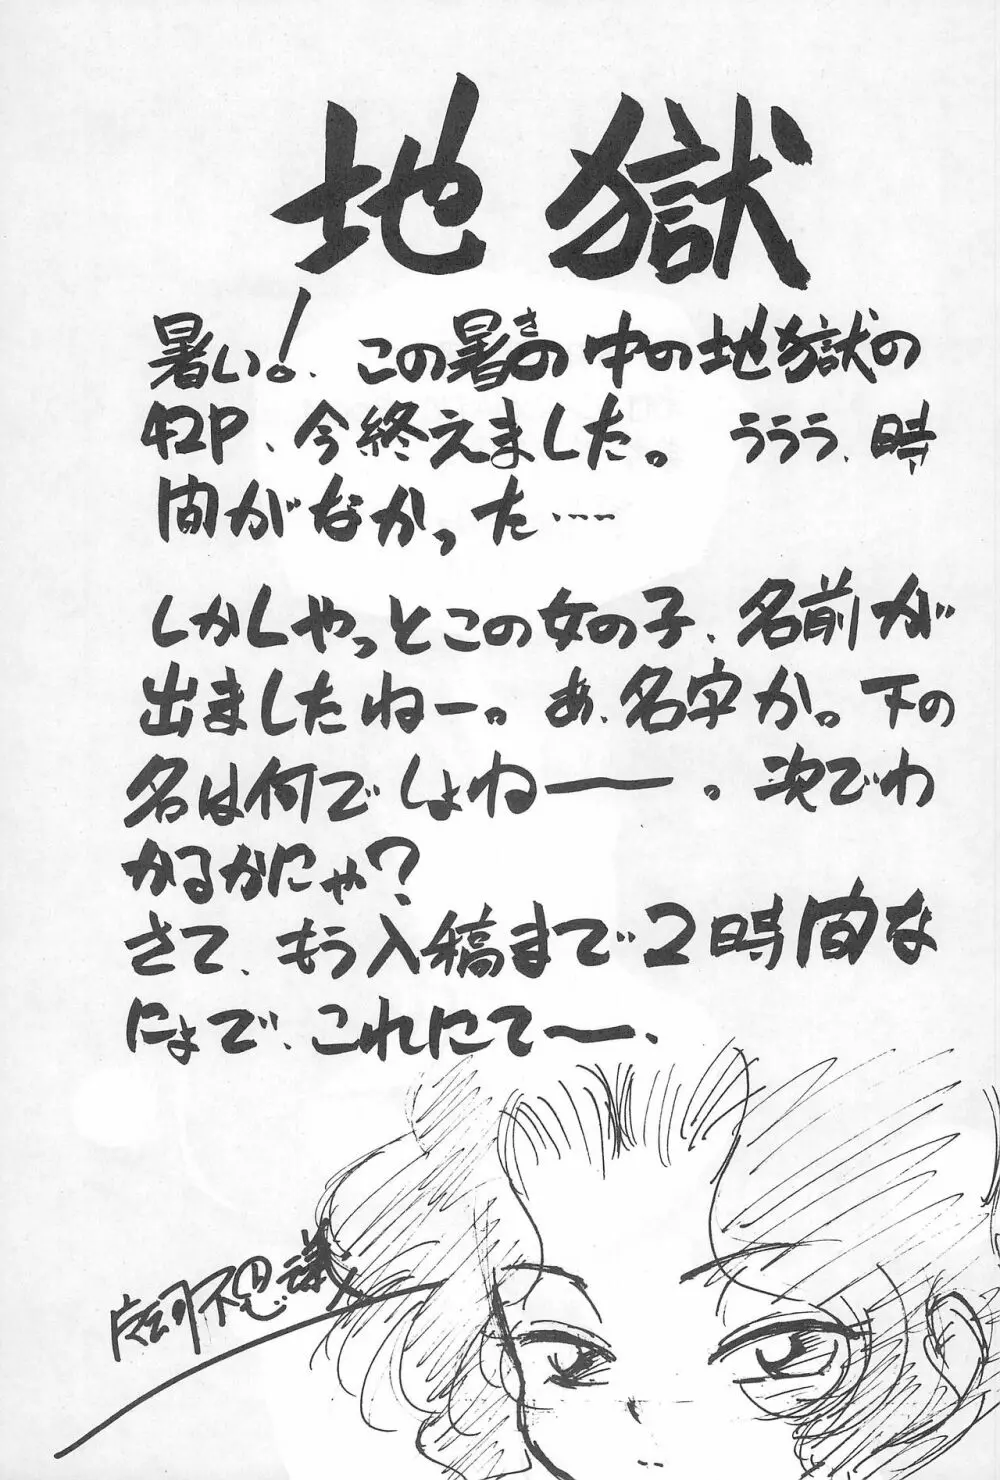 地獄
暑い！、この暑さの中の地獄の
42P、今終えました。 ううう、時
間がなかった……
しかしやっとこの女の子、名前が
出ましたねー。あ、名字か。下の
名は何でしょねー。次でわ
かるかにゃ？
さて、もう入稿まで2時間な
にょで、これにてー、
不思議